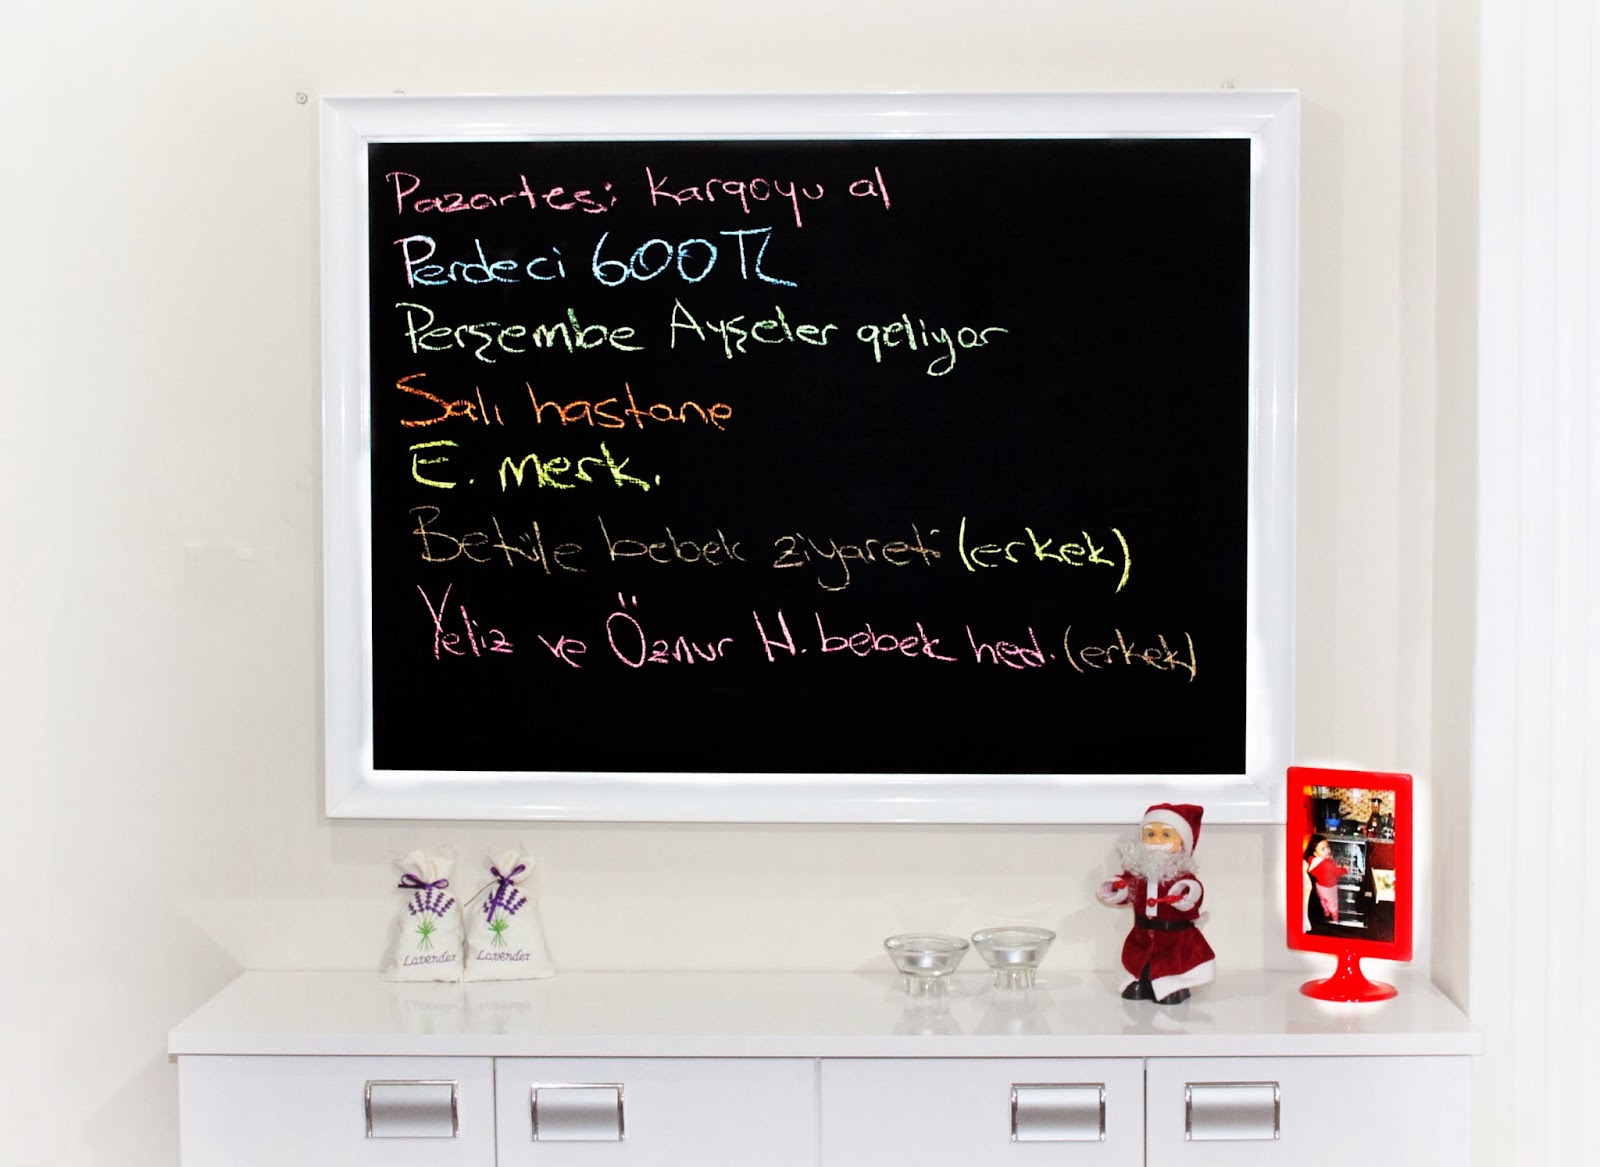 Pazartesi Kargoyu al
Perdeci 600TL
Perşembe Ayşeler geliyor
Salı hastane
E. merk.
Betüle bebek ziyareti (erkek)
Yeliz ve Öznur H. bebek hed. (erkek)
Lavender
Lavender